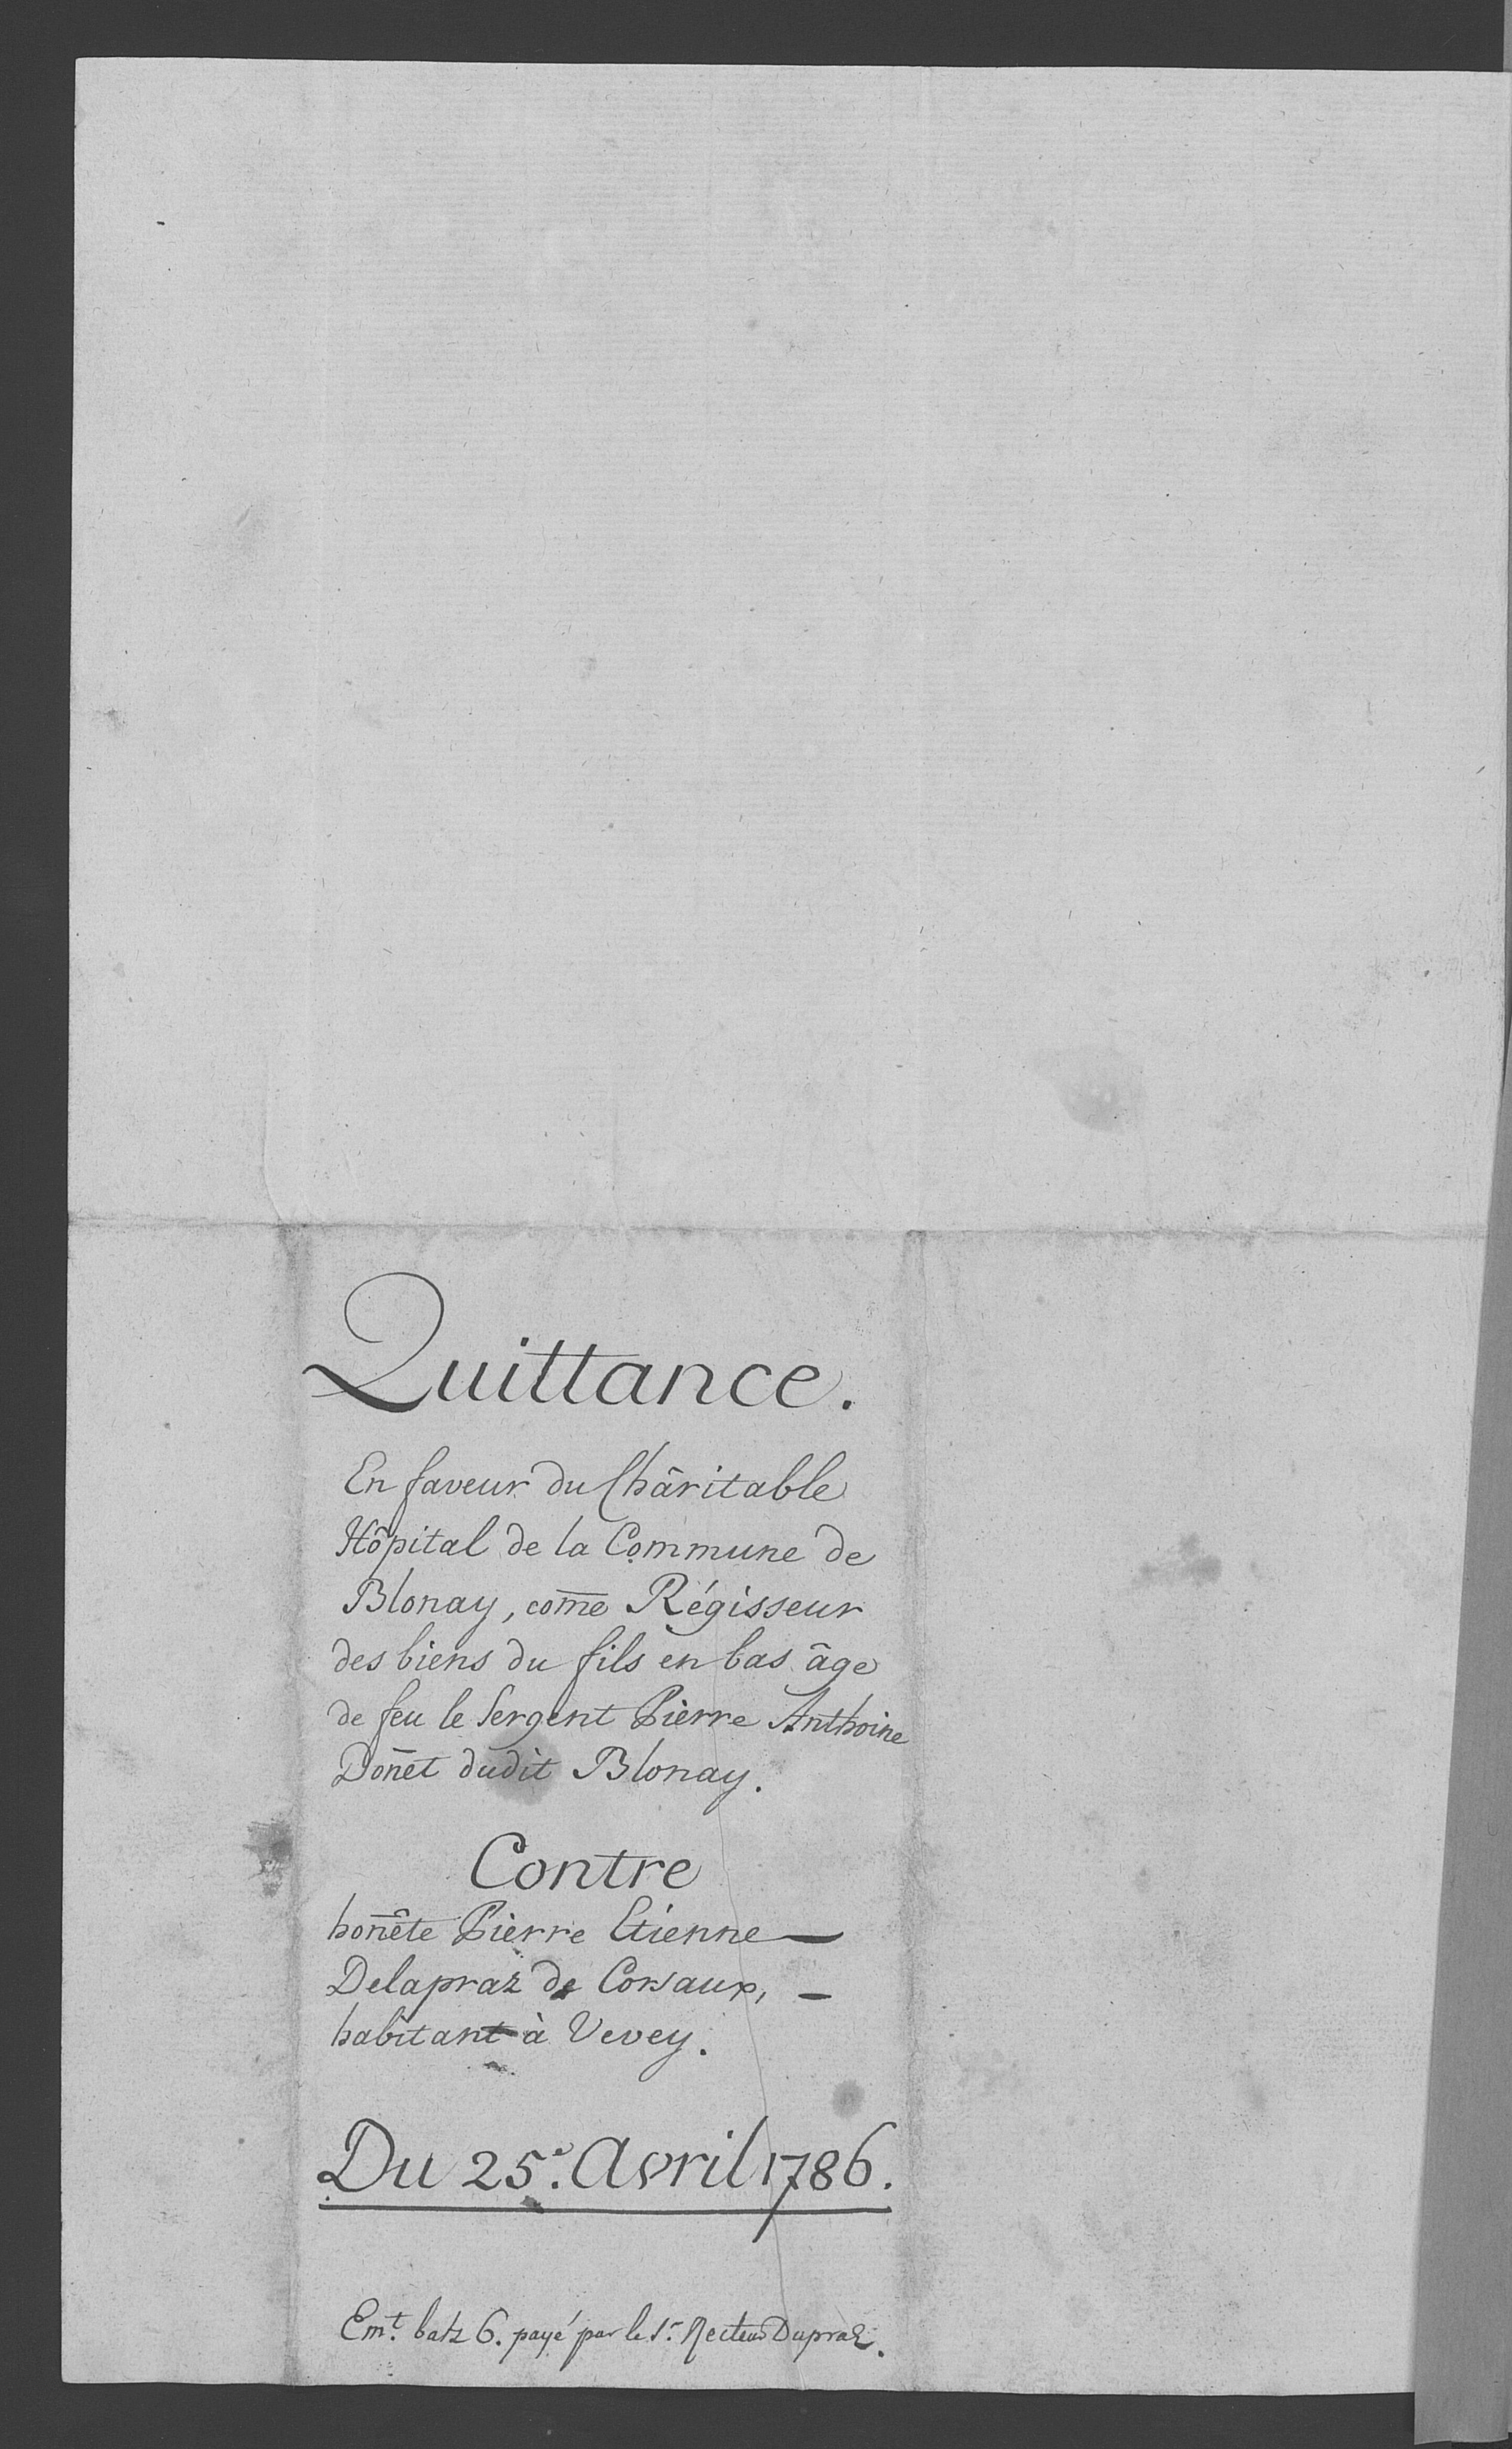 Quittance.
En faveur du Châritable
Hôpital de la Commune de
Blonay, com̄e Régisseur
des biens du fils en bas âge
de feu le Sergent Pierre Anthoine
Don̄et dudit Blonay.
Contre
hon̄ête Pierre Etienne —
Delapraz de Corsaux, —
habitant à Vevey.
Du 25e. Avril 1786.
Emt. batz 6. payé par le Sr. Recteur Dupraz.